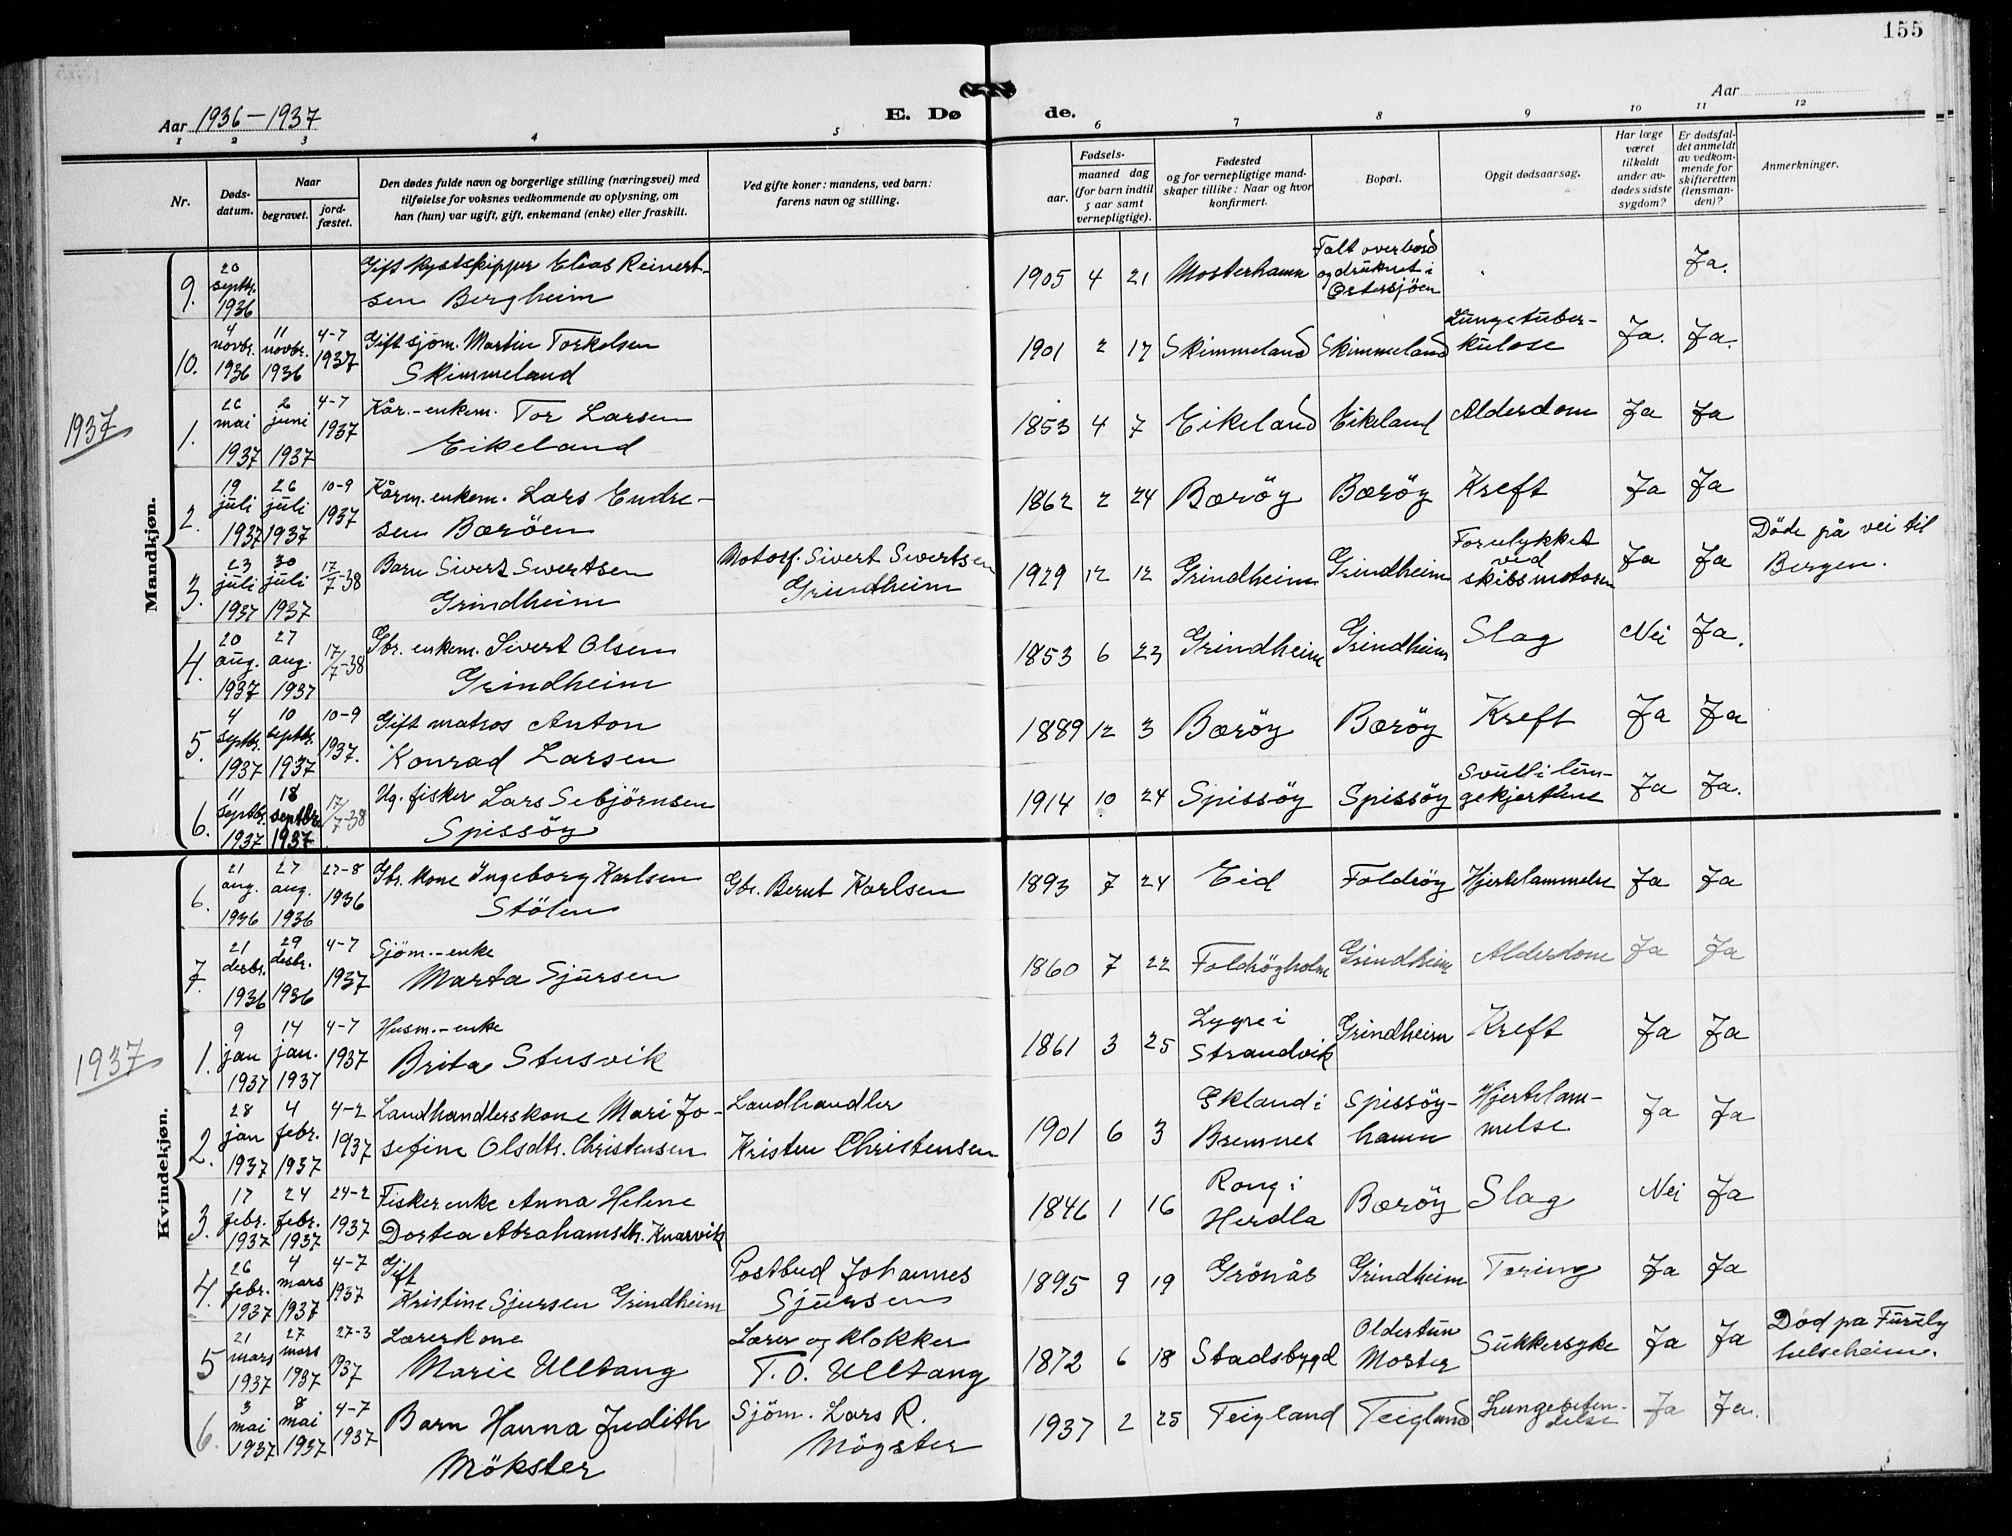 155
Aar 1936-1937
E. Dø de.
Aar
1 2 3 4 5 6 7 8 9 10 11 12
Nr.
Døds-datum.
Naar
begravet.
jord-fæstet.
Den dødes fulde navn og borgerlige stilling (næringsvei) med
tilføielse for voksnes vedkommende av oplysning, om
han (hun) var ugift, gift, enkemand (enke) eller fraskilt.
Ved gifte koner: mandens, ved barn:
farens navn og stilling.
Fødsels-
aar.
maaned dag
(for barn indtil
5 aar samt
vernepligtige).
Fødested
og for vernepligtige mand-
skaper tillike: Naar og hvor
konfirmert.
Bopæl.
Opgit dødsaarsag.
Har læge
været
tilkaldt
under av-
dødes sidste
sygdom?
Er dødsfal-
det anmeldt
av vedkom-
mende for
skifteretten
(lensman-
den)?
Anmerkninger.
Mandkjøn.
9. 20 septbr. 1936 Gift kystskipper Elias Reinert-
sen Bergheim 1905 4 21 Mosterhamn Falt overbord
og druknet i
Østersjöen Ja.
10. 4 novbr. 1936 11 novbr. 1936 4-7 1937 Gift sjöm. Martin Torkelsen
Skimmeland 1901 2 17 Skimmeland Skimmeland Lungetuber-
kulose Ja. Ja.
1937
1. 26 mai 1937 2 juni 1937 4-7 1937 Kår.-enkem. Tor Larsen
Eikeland 1853 4 7 Eikeland Eikeland Alderdom Ja Ja
2. 19 juli 1937 26 juli 1937 10-9 1937 Kårm. enkem. Lars Endre-
sen Bæröen 1862 2 24 Bæröy Bæröy Kreft Ja Ja
3. 23 juli 1937 30 juli 1937 17/7-38 Barn Sivert Sivertsen
Grindheim Motorf. Sivert Sivertsen
Grindheim 1929 12 12 Grindheim Grindheim Forulykket
ved
skibsmotoren Ja Ja Döde på vei til
Bergen.
4. 20 aug. 1937 27 aug. 1937 17/7-38 Gbr. enkem. Sivert Olsen
Grindheim 1853 6 23 Grindheim Grindheim Slag Nei Ja.
5. 4 septbr. 1937 10 septbr. 1937 10-9 1937. Gift matros Anton
Konrad Larsen 1889 12 3 Bæröy Bæröy Kreft Ja Ja
6. 11 septbr. 1937 18 septbr. 1937 17/7-38 Ug. fisker Lars Sebjörnsen
Spissöy 1914 10 24 Spissöy Spissöy Svull i lun-
gekjertlene Ja Ja.
Kvindekjøn.
6. 21 aug. 1936 27 aug. 1936 27-8 1936 Gbr. kone Ingeborg Karlsen
Stölen Gbr. Bernt Karlsen 1893 7 24 Eid Foldröy Hjertelammelse Ja Ja
7. 21 desbr. 1936 29 desbr. 1936 4-7 1937 Sjöm.-enke
Marta Sjursen 1860 7 22 Foldröyholm Grindheim Alderdom Ja Ja
1937
1. 9 jan 1937 14 jan. 1937 4-7 1937 Husm.-enke
Brita Stusvik 1861 3 25 Lygre i
Strandvik Grindheim Kreft Ja Ja
2. 28 jan 1937 4 febr. 1937 4-2 1937 Landhandlerskone Mari Jo-
sefine Olsdtr. Christensen Landhandler
Kristen Christensen 1901 6 3 Ekland i
Bremnes Spissöy-
hamn Hjertelam-
melse Ja Ja
3. 17 febr. 1937 24 febr. 1937 24-2 1937 Fisker enke Anna Helene
Dortea Abrahamsdtr. Knarvik 1846 1 16 Rong i
Herdla Bæröy Slag Nei Ja
4. 26 febr. 1937 4 mars 1937 4-7 1937 Gift
Kristine Sjursen Grindheim Postbud Johannes
Sjursen 1895 9 19 Grönås Grindheim Tæring Ja Ja
5 21 mars 1937 27 mars 1937 27-3 1937 Lærerkone
Marie Ulltang Lærer og klokker
T. O. Ulltang 1872 6 18 Stadsbygd Oldertun
Moster Sukkersyke Ja Ja Död på Furuly
helseheim.
6. 3 mai 1937 8 mai 1937 4-7 1937 Barn Hanna Judith
Mökster Sjöm. Lars R.
Mögster 1937 2 25 Teigland Teigland Lungebeten-
delse Ja Ja.